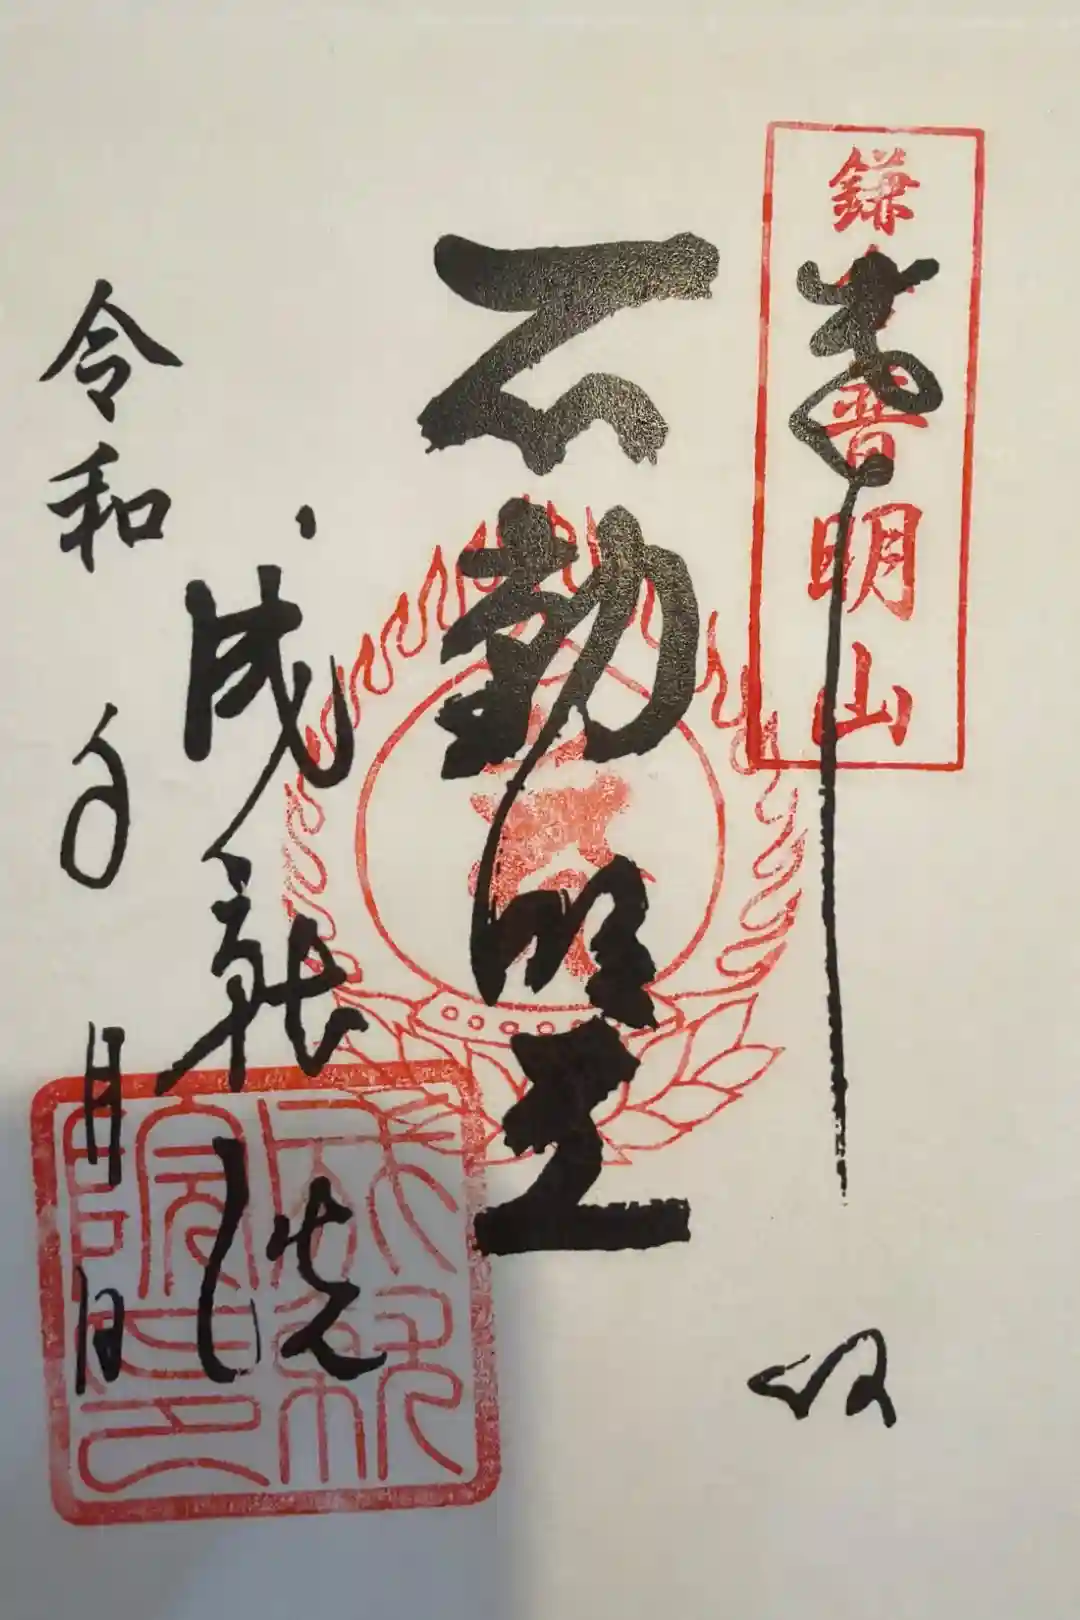 鎌倉 普明山
奉拝
不動明王
成就院
令和 年 月 日
成就院印